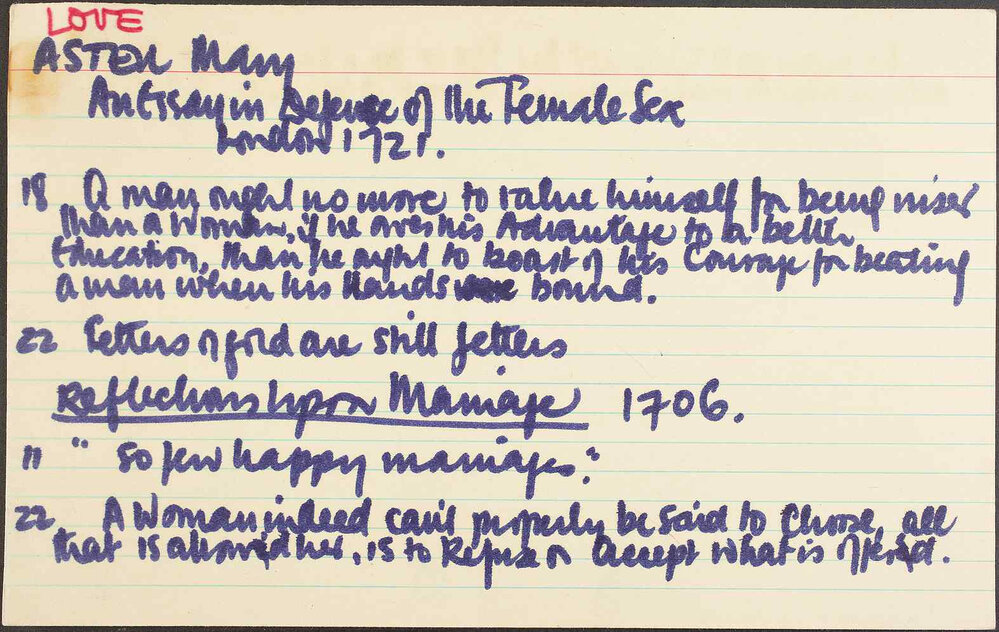 LOVE
ASTELL Mary
An Essay in Defense of the Female Sex
London 1721.
18 A man ought no more to value himself for being wiser
than a Woman, if he owes his Advantage to a better
Education, than he ought to boast of his Courage for beating
a man when his Hands were bound.
22 Fetters of gold are still fetters
Reflections upon Marriage 1706.
11 " so few happy marriages."
22 A Woman indeed can't properly be said to Choose, all
that is allowed her, is to Refuse or accept what is offered.